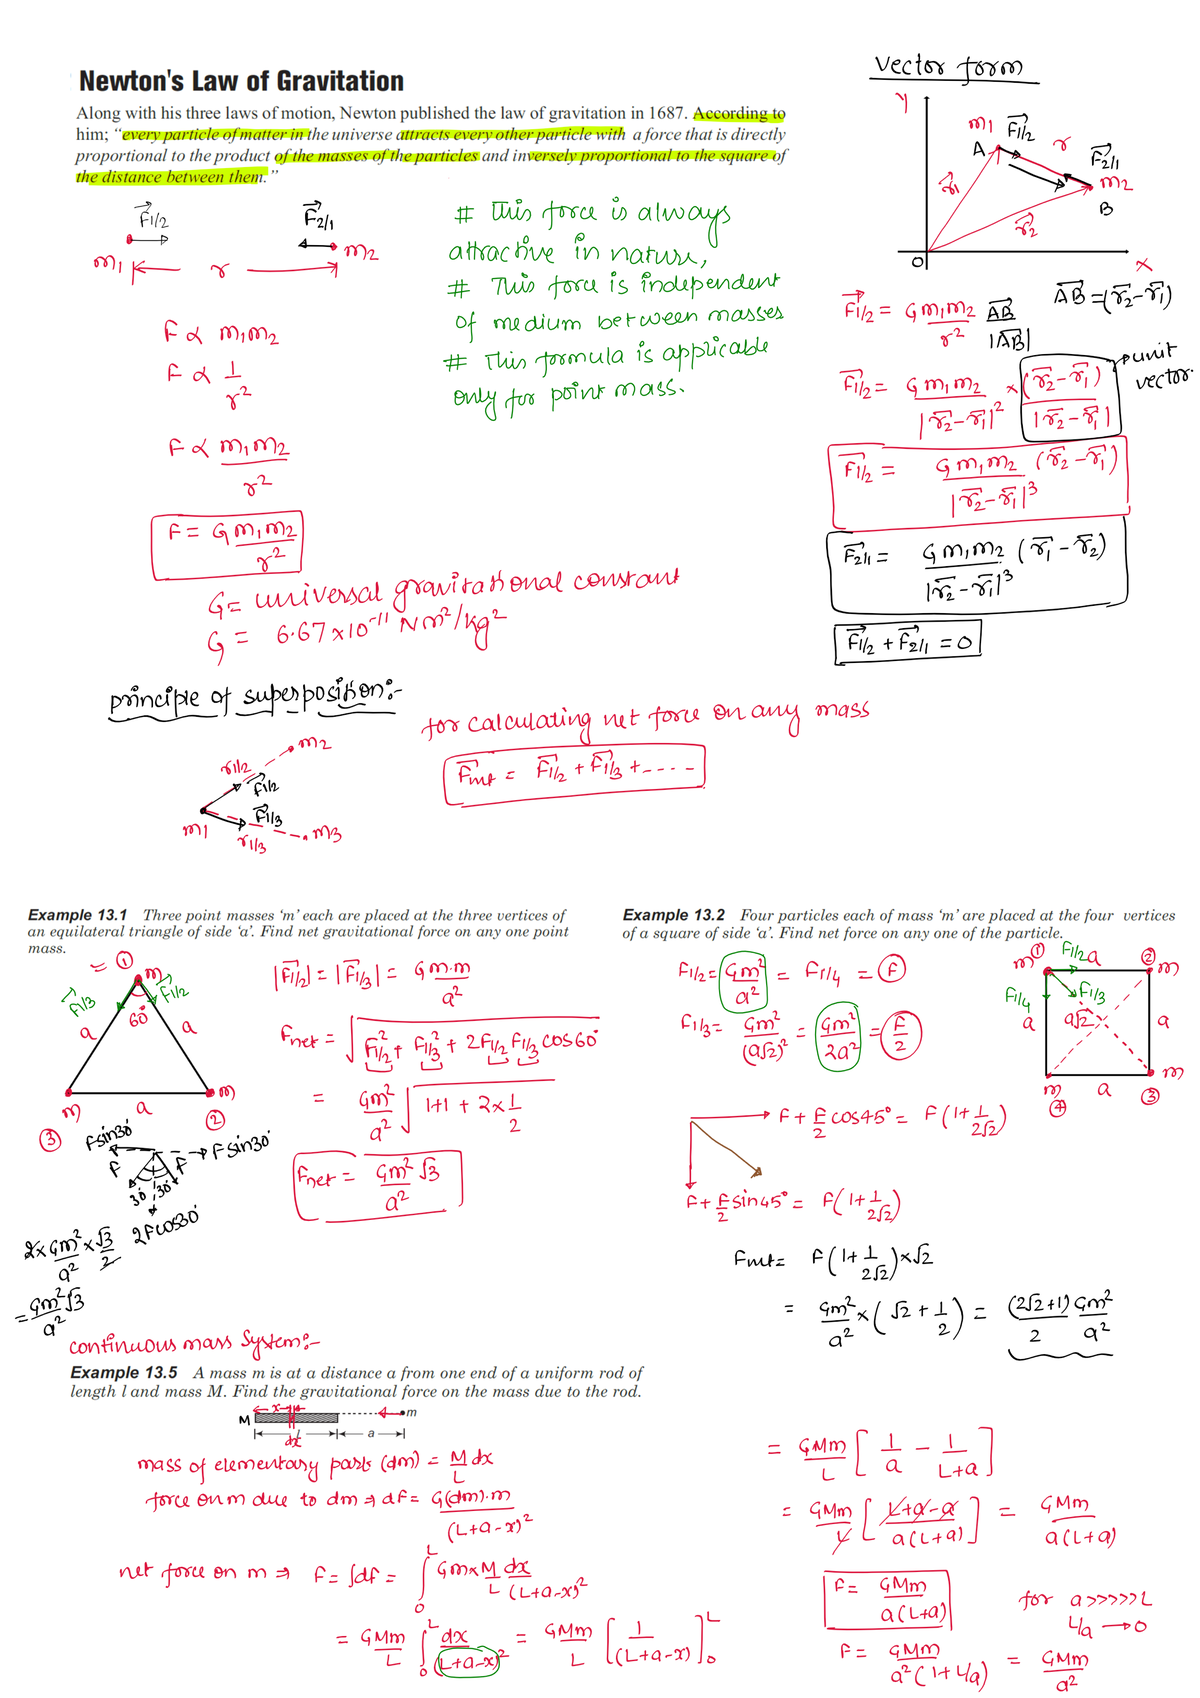 Newton's Law of Gravitation
Along with his three laws of motion, Newton published the law of gravitation in 1687. According to
him; “every particle of matter in the universe attracts every other particle with a force that is directly
proportional to the product of the masses of the particles and inversely proportional to the square of
the distance between them.”
F⃗1/2
F⃗2/1
m1
r
m2
F ∝ m1m2
F ∝ 1/r²
F ∝ m1m2/r²
F = G m1m2/r²
G = universal gravitational constant
G = 6.67×10⁻¹¹ Nm²/kg²
# This force is always
attractive in nature,
# This force is independent
of medium between masses
# This formula is applicable
only for point mass.
Vector form
Y
m1 F⃗1/2
A
r
F⃗2/1
m2
B
r⃗1
r⃗2
O
X
F⃗1/2 = G m1m2/r² AB⃗/|AB⃗|
AB⃗ = (r⃗2-r⃗1)
F⃗1/2 = G m1m2/|r⃗2-r⃗1|² × (r⃗2-r⃗1)/|r⃗2-r⃗1|
unit
vector.
F⃗1/2 = G m1m2 (r⃗2-r⃗1)/|r⃗2-r⃗1|³
F⃗2/1 = G m1m2 (r⃗1-r⃗2)/|r⃗2-r⃗1|³
F⃗1/2 + F⃗2/1 = 0
principle of superposition:-
m2
r1/2
F⃗1/2
F⃗1/3
m1
r1/3
m3
for calculating net force on any mass
F⃗net = F⃗1/2 + F⃗1/3 + ----
Example 13.1 Three point masses ‘m’ each are placed at the three vertices of
an equilateral triangle of side ‘a’. Find net gravitational force on any one point
mass.
= ①
m
F⃗1/3
F⃗1/2
60°
a
a
m
a
m
③
②
|F⃗1/2| = |F⃗1/3| = G m.m/a²
Fnet = √(F1/2² + F1/3² + 2F1/2 F1/3 cos60°)
= Gm²/a² √(1+1+2×1/2)
Fnet = Gm²√3/a²
Fsin30°
Fsin30°
F
F
30°
30°
2Fcos30°
2×Gm²/a² × √3/2
= Gm²√3/a²
Example 13.2 Four particles each of mass ‘m’ are placed at the four vertices
of a square of side ‘a’. Find net force on any one of the particle.
F1/2 = Gm²/a² = F1/4 = F
F1/3 = Gm²/(a√2)² = Gm²/2a² = F/2
m ①
F1/2
a
②
m
F1/4
F1/3
a
a√2
a
m
④
a
③
m
F + F/2 cos45° = F(1+1/2√2)
F + F/2 sin45° = F(1+1/2√2)
Fnet = F(1+1/2√2)×√2
= Gm²/a² × (√2+1/2) = (2√2+1)/2 Gm²/a²
continuous mass System:-
Example 13.5 A mass m is at a distance a from one end of a uniform rod of
length l and mass M. Find the gravitational force on the mass due to the rod.
x
M
m
l
a
dx
mass of elementary parts (dm) = M/L dx
force on m due to dm ⇒ dF = G(dm).m/(L+a-x)²
net force on m ⇒ F = ∫dF = ∫₀ᴸ Gm×M/L dx/(L+a-x)²
= GMm/L ∫₀ᴸ dx/(L+a-x)² = GMm/L [1/(L+a-x)]₀ᴸ
= GMm/L [1/a - 1/(L+a)]
= GMm/L [(L+a-a)/a(L+a)] = GMm/a(L+a)
F = GMm/a(L+a)
for a>>>>>L
L/a → 0
F = GMm/a²(1+L/a) = GMm/a²